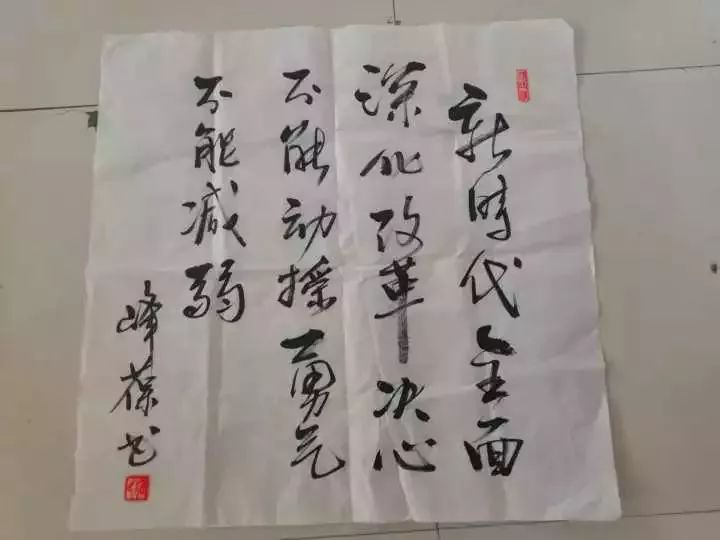 新時代全面
深化改革决心
不能动摇勇气
不能减弱
峰葆书